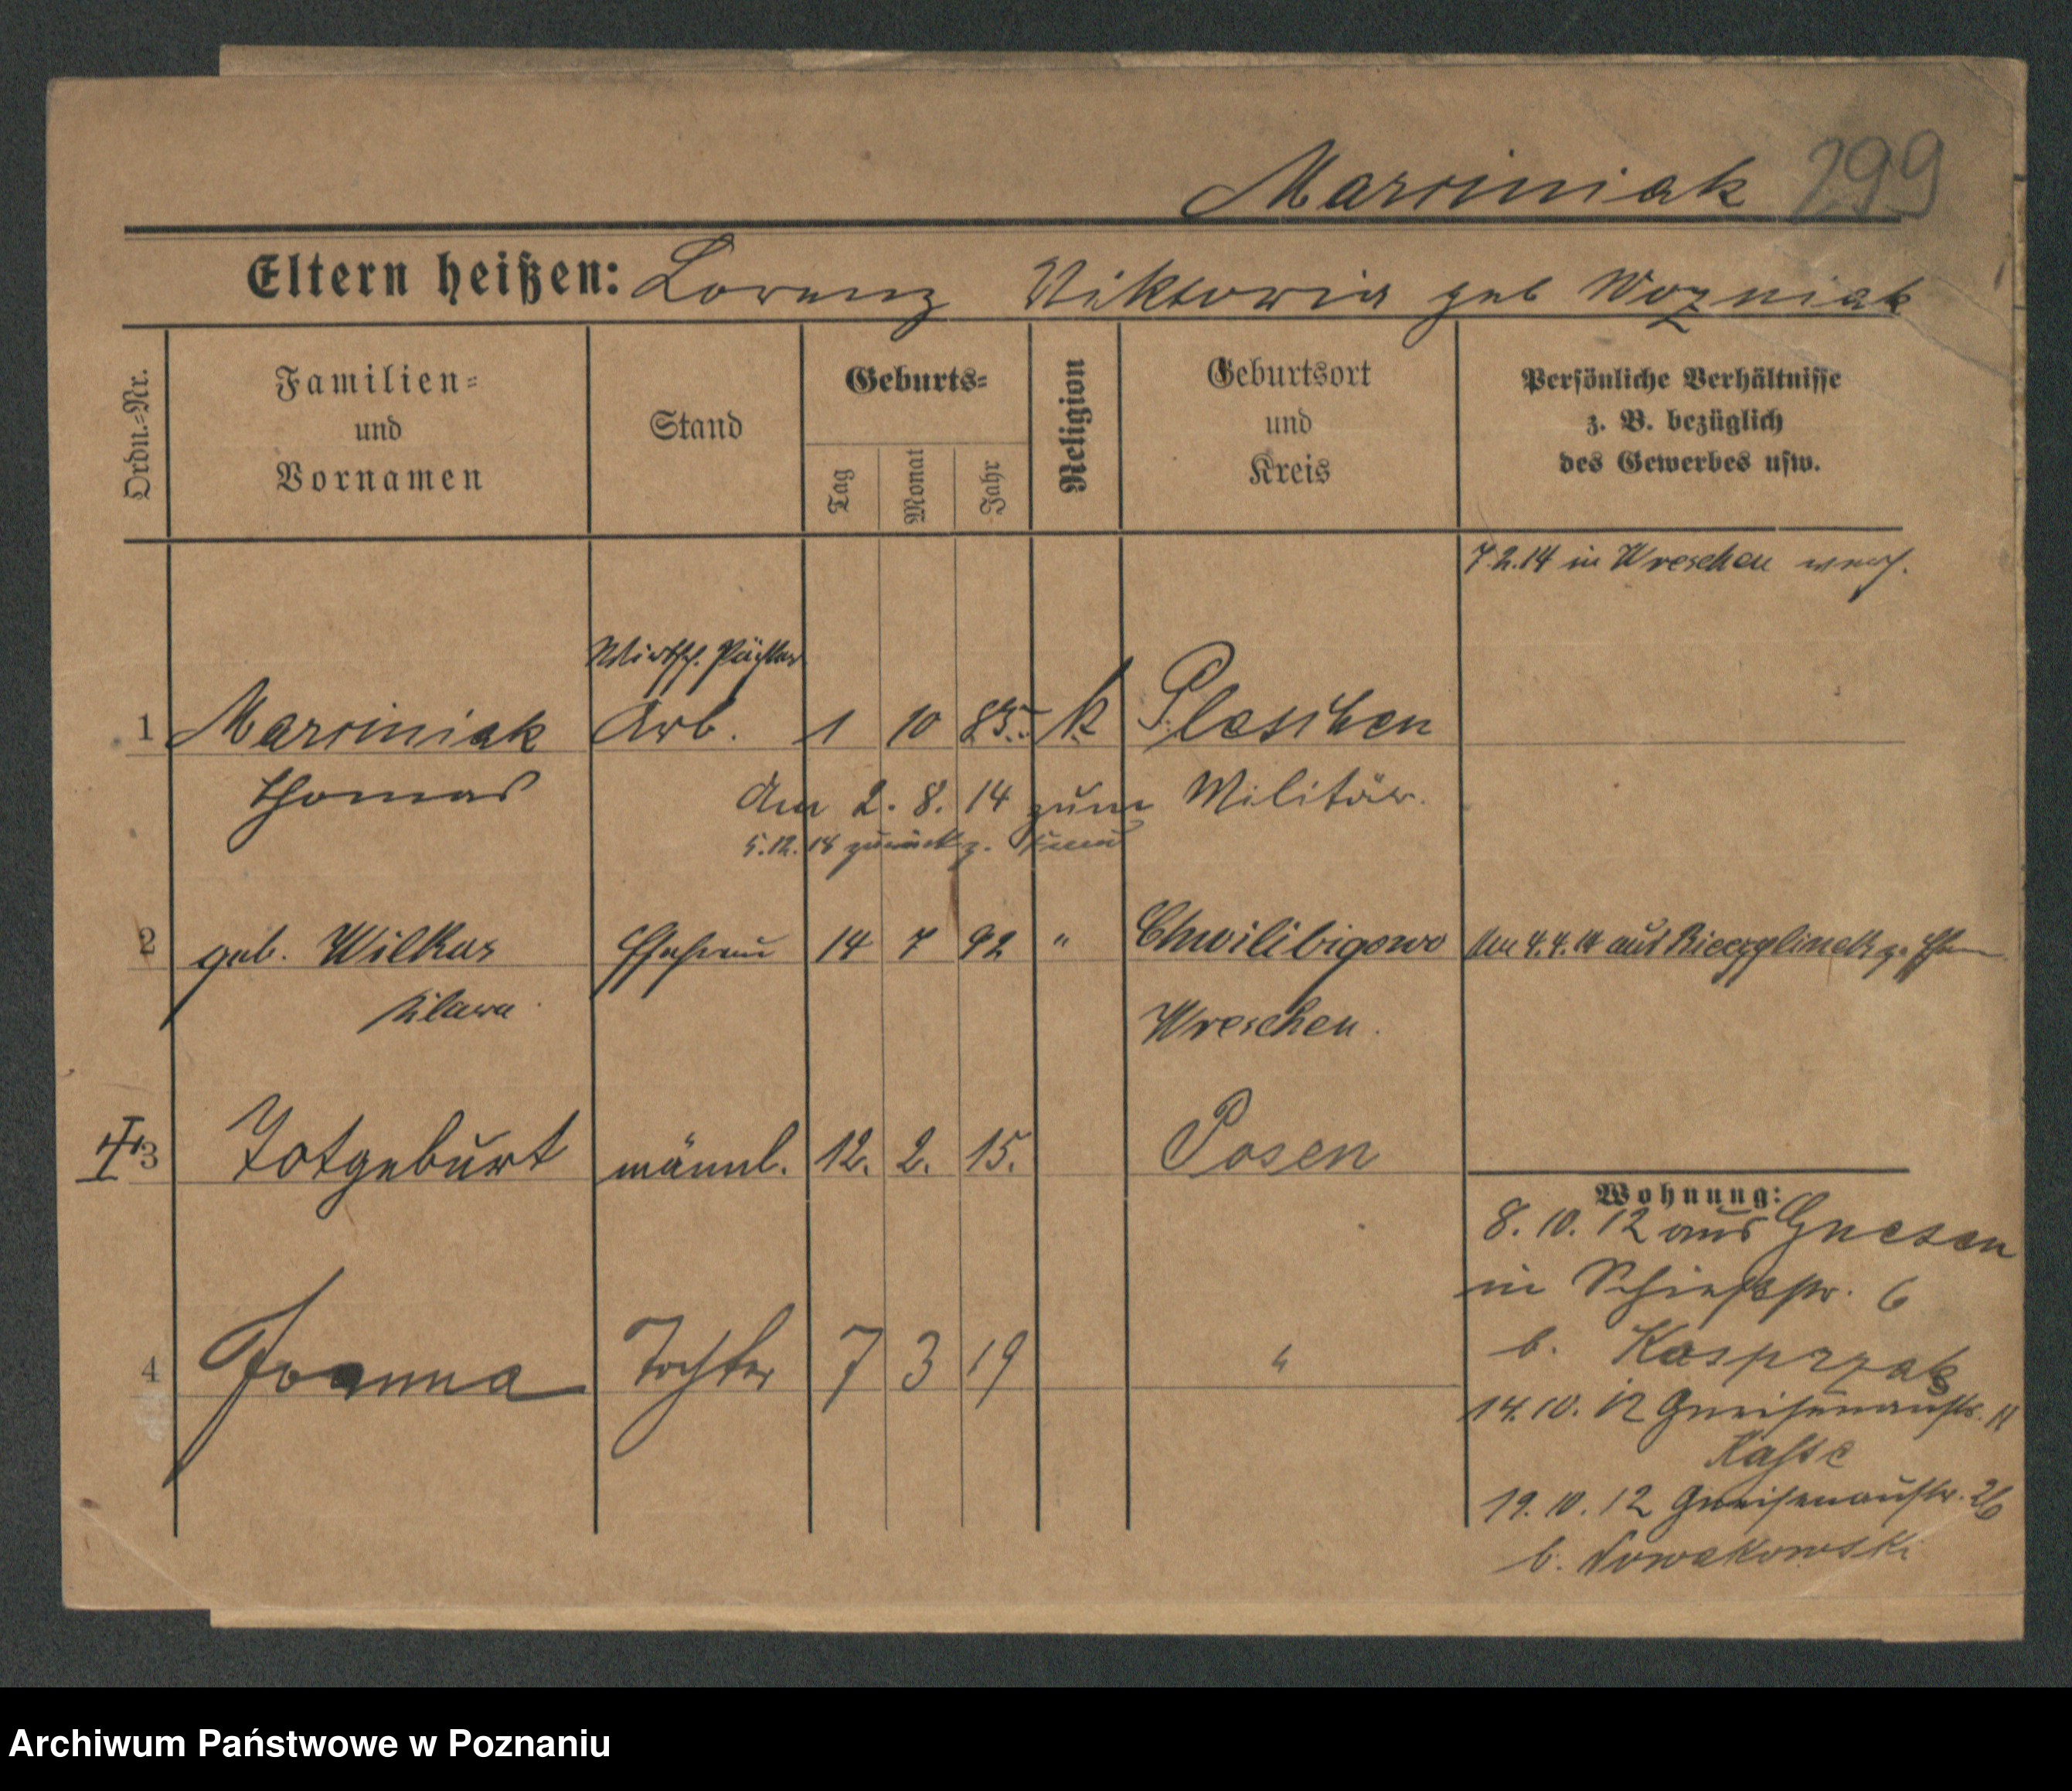 Marciniak 299
Eltern heißen: Lorenz Viktoria geb Wozniak
Ordn.=Nr.
Familien=
und
Vornamen
Stand
Geburts=
Tag
Monat
Jahr
Religion
Geburtsort
und
Kreis
Persönliche Verhältnisse
z. B. bezüglich
des Gewerbes usw.
7.2.14 in Wreschen verh.
Wirtsch. Pächter
1 Marciniak Arb. 1 10 85. k Pleschen
Thomas
Am 2. 8. 14 zum Militär.
5.12.18 zurück z.
2 geb. Wilkas Ehefrau 14 7 92 " Chwilibigowo Am 4.4.14 aus z.
Klara
Wreschen.
3 Totgeburt männl. 12. 2. 15. Posen
Wohnung:
8. 10. 12 aus Gnesen
in Schießstr. 6
b. Kasprzak
4 Joanna Tochter 7 3 19 "
14. 10. 12 Gneisenaustr. 11
19. 10. 12 Gneisenaustr. 26
b. Nowakowski
Archiwum Państwowe w Poznaniu